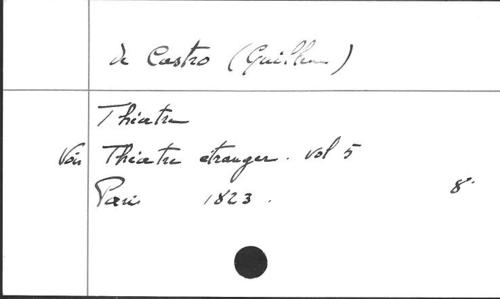 de Castro (Guilhem)
Théatre
Voir Théatre étranger. vol 5
Paris 1823. 8°